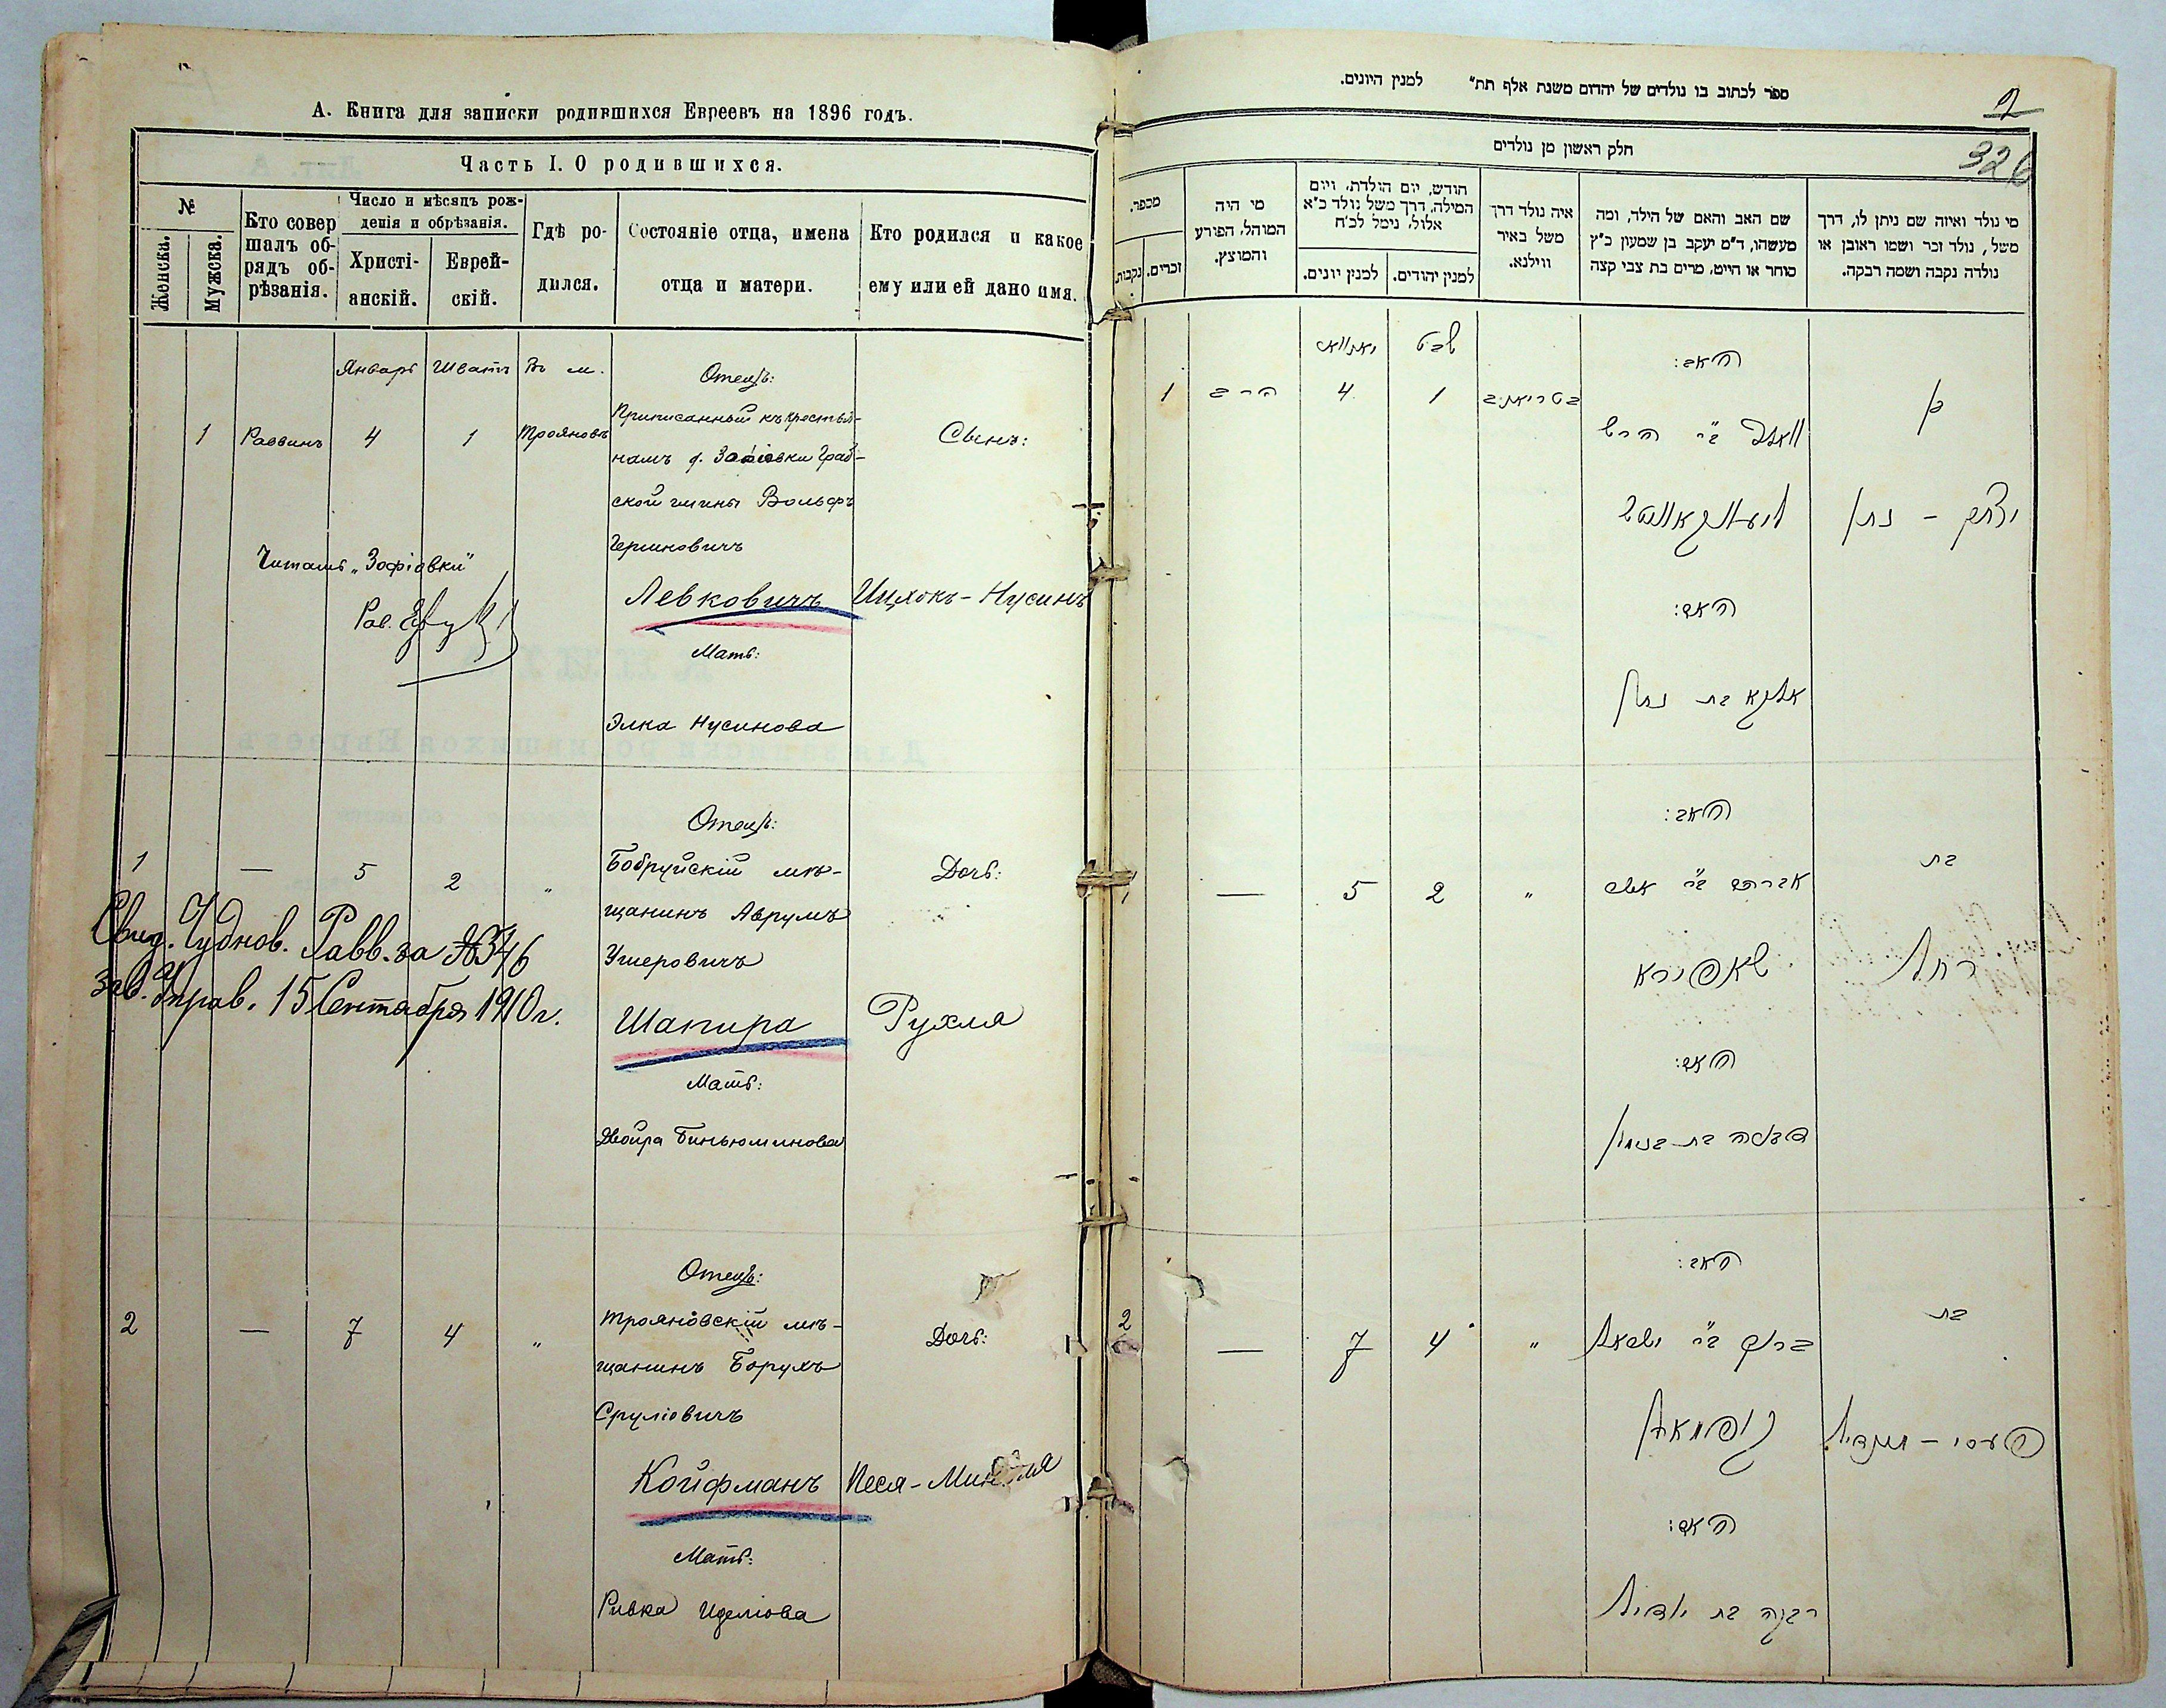 А. Книга для записки родившихся Евреевъ на 1896 годъ.
Часть I. О родившихся.
№
Женска.
Мужска.
Кто совер
шалъ об-
рядъ об-
рѣзанія.
Число и мѣсяцъ рож-
денія и обрѣзанія.
Христі-
анскій.
Еврей-
скій.
Гдѣ ро-
дился.
Состояніе отца, имена
отца и матери.
Кто родился и какое
ему или ей дано имя.
Январь Шватъ Въ м.
1 Раввинъ 4 1 Трояновъ
Отецъ:
Приписанный къ крестья-
намъ д. Зофіовки Граб-
ской гмины Вольфъ
Гершновичъ
Левковичъ
Мать:
Элка Нусинова
Сынъ:
Ицхокъ - Нусинъ
Читать „Зофіовки"
Рав.
1 — 5 2 „
Отецъ:
Бобруйскій мѣ-
щанинъ Аврумъ
Ушеровичъ
Шапира
Мать:
Двойра Биньюминова
Дочь:
Рухля
Свид. Чуднов. Равв. за № 346
Зав. Управ. 15 Сентября 1910 г.
2 — 7 4 „
Отецъ:
Трояновскій мѣ-
щанинъ Борухъ
Сруліовичъ
Койфманъ
Мать:
Ривка Иделіова
Дочь:
Песя -
ספר לכתוב בו נולדים של יהדום משנת אלף תת״ למנין היונים.
2
326
חלק ראשון מן נולדים
מספר.
נקבות.
זכרים.
מי היה
המוהל, הפורע
והמוצץ.
חודש, יום הולדת, ויום
המילה, דרך משל נולד כ״א
אלול, נימל לכ״ח
למנין יונים.
למנין יהודים.
איה נולד דרך
משל באיר
ווילנא.
שם האב והאם של הילד, ומה
מעשהו, ד״מ יעקב בן שמעון כ״ץ
סוחר או הייט, מרים בת צבי קצה
מי נולד ואיזה שם ניתן לו, דרך
משל, נולד זכר ושמו ראובן או
נולדה נקבה ושמה רבקה.
יאנוואר שבט
1 הרב 4 1
האב:
וואלף ב״ר הירש
האם:
אלקא בת נתן
בן
יצחק - נתן
1 — 5 2 „
האב:
אברהם ב״ר אשר
שאפירא
האם:
דבורה בת בנימין
בת
רחל
2 — 7 4 „
האב:
ברוך ב״ר ישראל
קויפמאן
האם:
רבקה בת יודיל
בת
פעסי - מינדיל